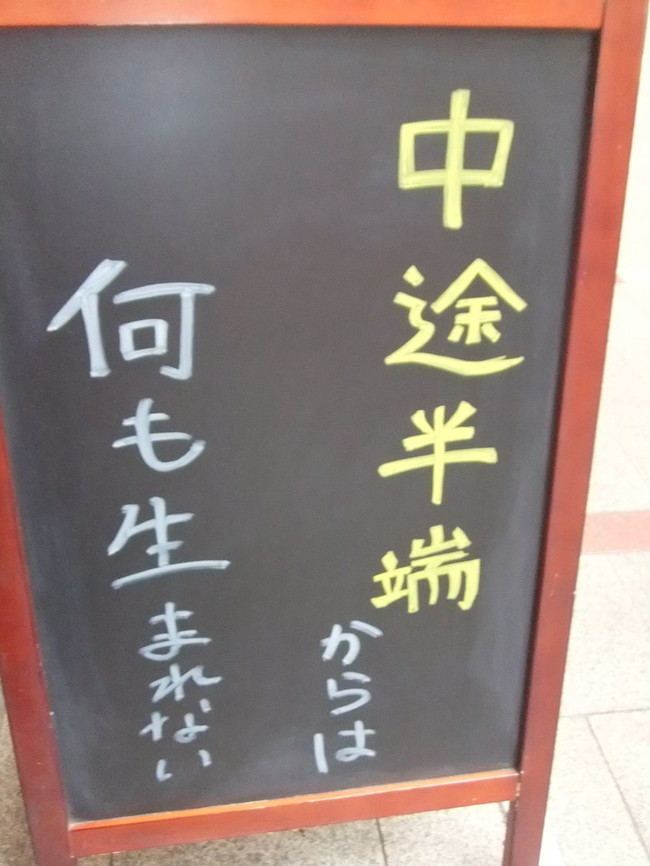 中途半端からは
何も生まれない